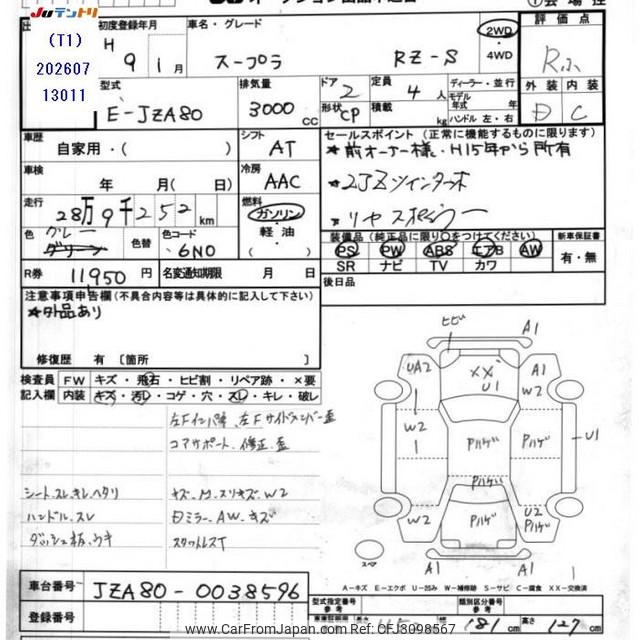 Juテントリ
(T1)
202607
13011
初度登録年月
車名・グレード
評価点
H 9年 1月
スープラ
RZ-S
2WD
4WD
R
外装 内装
D C
型式
E-JZA80
排気量
3000 cc
ドア 2
形状 CP
定員 4 人
積載 kg
ディーラー・並行
モデル年式 年
ハンドル 左・右
車歴
自家用・( )
シフト
AT
セールスポイント (正常に機能するものに限ります)
★前オーナー様、H15年から所有
車検
年 月( 日)
冷房
AAC
★2JZツインターボ
走行
28万9千252 km
燃料
ガソリン・軽油・( )
★リヤスポイラー
色
グレー
色替
色コード
6N0
装備品(純正品に限り〇をつけてください)
新車保証書
PS PW ABS エアB AW
SR ナビ TV カワ
有・無
R券 11950 円
名変通知期限 月 日
後日品
注意事項申告欄(不具合内容等は具体的に記入して下さい)
★外品あり
修復歴 有 〔箇所 〕
検査員 FW キズ・飛石・ヒビ割・リペア跡・×要
記入欄 内装 キズ・汚レ・コゲ・穴・スレ・キレ・破レ
左Fインパネ、左Fサイドメンバー歪
コアサポート、修正、歪
シート、スレ、キレ、ヘタリ
キズ、凹、スリキズ、W2
ハンドル、スレ
ミラー、AW、キズ
ダッシュ板、ウキ
ヒビ
A1
UA2
××
U1
A1
W2
W2
1
Pハゲ
Pハゲ
U1
Pハゲ
W2
Pハゲ
U2
Pハゲ
スペア
A1
A1
A-キズ E-エクボ U-凹み W-補修跡 S-サビ C-腐食 XX-交換済
車台番号 JZA80-0038596
登録番号
型式指定番号 参考
類別区分番号 参考
181 cm
高さ 127 cm
www.CarFromJapan.com | CFJ8998567